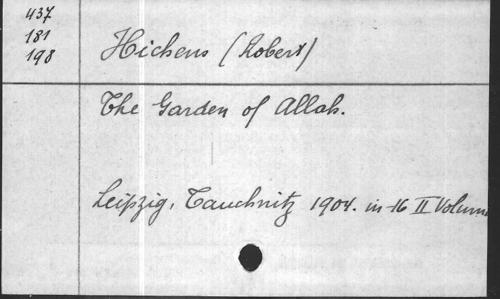 437
181
198
Hichens (Robert)
The Garden of Allah.
Leipzig, Tauchnitz 1904. in-16 II Volume